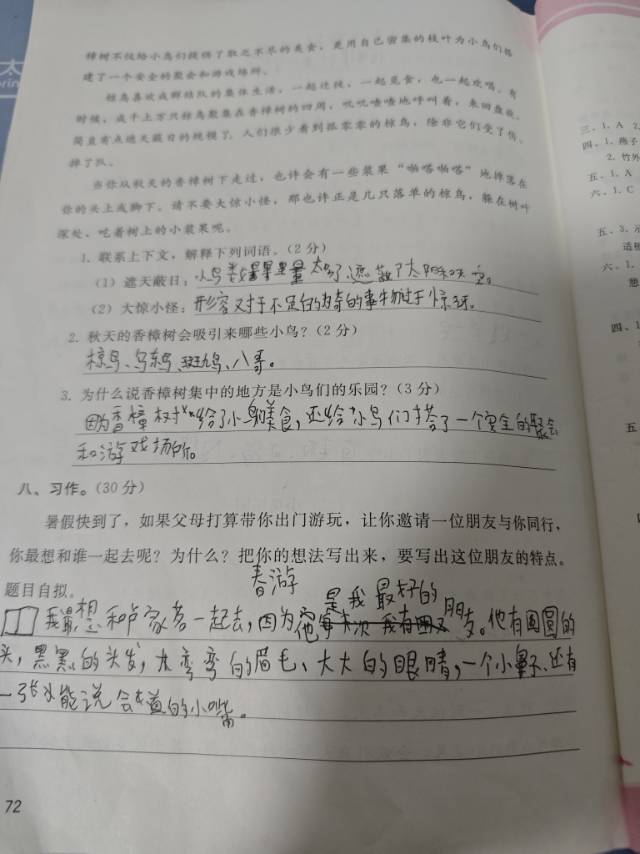 樟树不仅给小鸟们提供了取之不尽的美食，更用自己密集的枝叶为小鸟们搭
建了一个安全的聚会和游戏场所。
椋鸟喜欢成群结队的集体生活，一起迁徙，一起觅食，也一起欢唱。有
时候，成千上万只椋鸟聚集在香樟树的四周，吱吱喳喳地呼叫着，来回盘旋，
简直有点遮天蔽日的规模了。人们很少看到孤零零的椋鸟，除非它们受了伤、
掉了队。
当你从秋天的香樟树下走过，也许会有一些浆果“啪嗒啪嗒”地掉落在
你的头上或脚下。请不要大惊小怪，那也许正是几只落单的椋鸟，躲在树叶
深处，吃着树上的小浆果呢。
1. 联系上下文，解释下列词语。(2 分)
(1) 遮天蔽日：小鸟数量太多了遮蔽了太阳和天空。
(2) 大惊小怪：形容对于不足为奇的事物过于惊讶。
2. 秋天的香樟树会吸引来哪些小鸟？(2 分)
椋鸟、乌东鸟、斑鸠、八哥。
3. 为什么说香樟树集中的地方是小鸟们的乐园？(3 分)
因为香樟树给了小鸟美食，还给小鸟们搭了一个安全的聚会
和游戏场所。
八、习作。(30 分)
暑假快到了，如果父母打算带你出门游玩，让你邀请一位朋友与你同行，
你最想和谁一起去呢？为什么？把你的想法写出来，要写出这位朋友的特点。
题目自拟。
春游
我最想和卢家茗一起去，因为他是我最好的朋友。他有圆圆的
头，黑黑的头发，弯弯的眉毛、大大的眼睛，一个小鼻子、还有
一张能说会道的小嘴。
72
三、1. A 2.
四、1. 燕子
2. 竹外
五、1. A
六、1. C
五、3.
六、1.
四、1
五